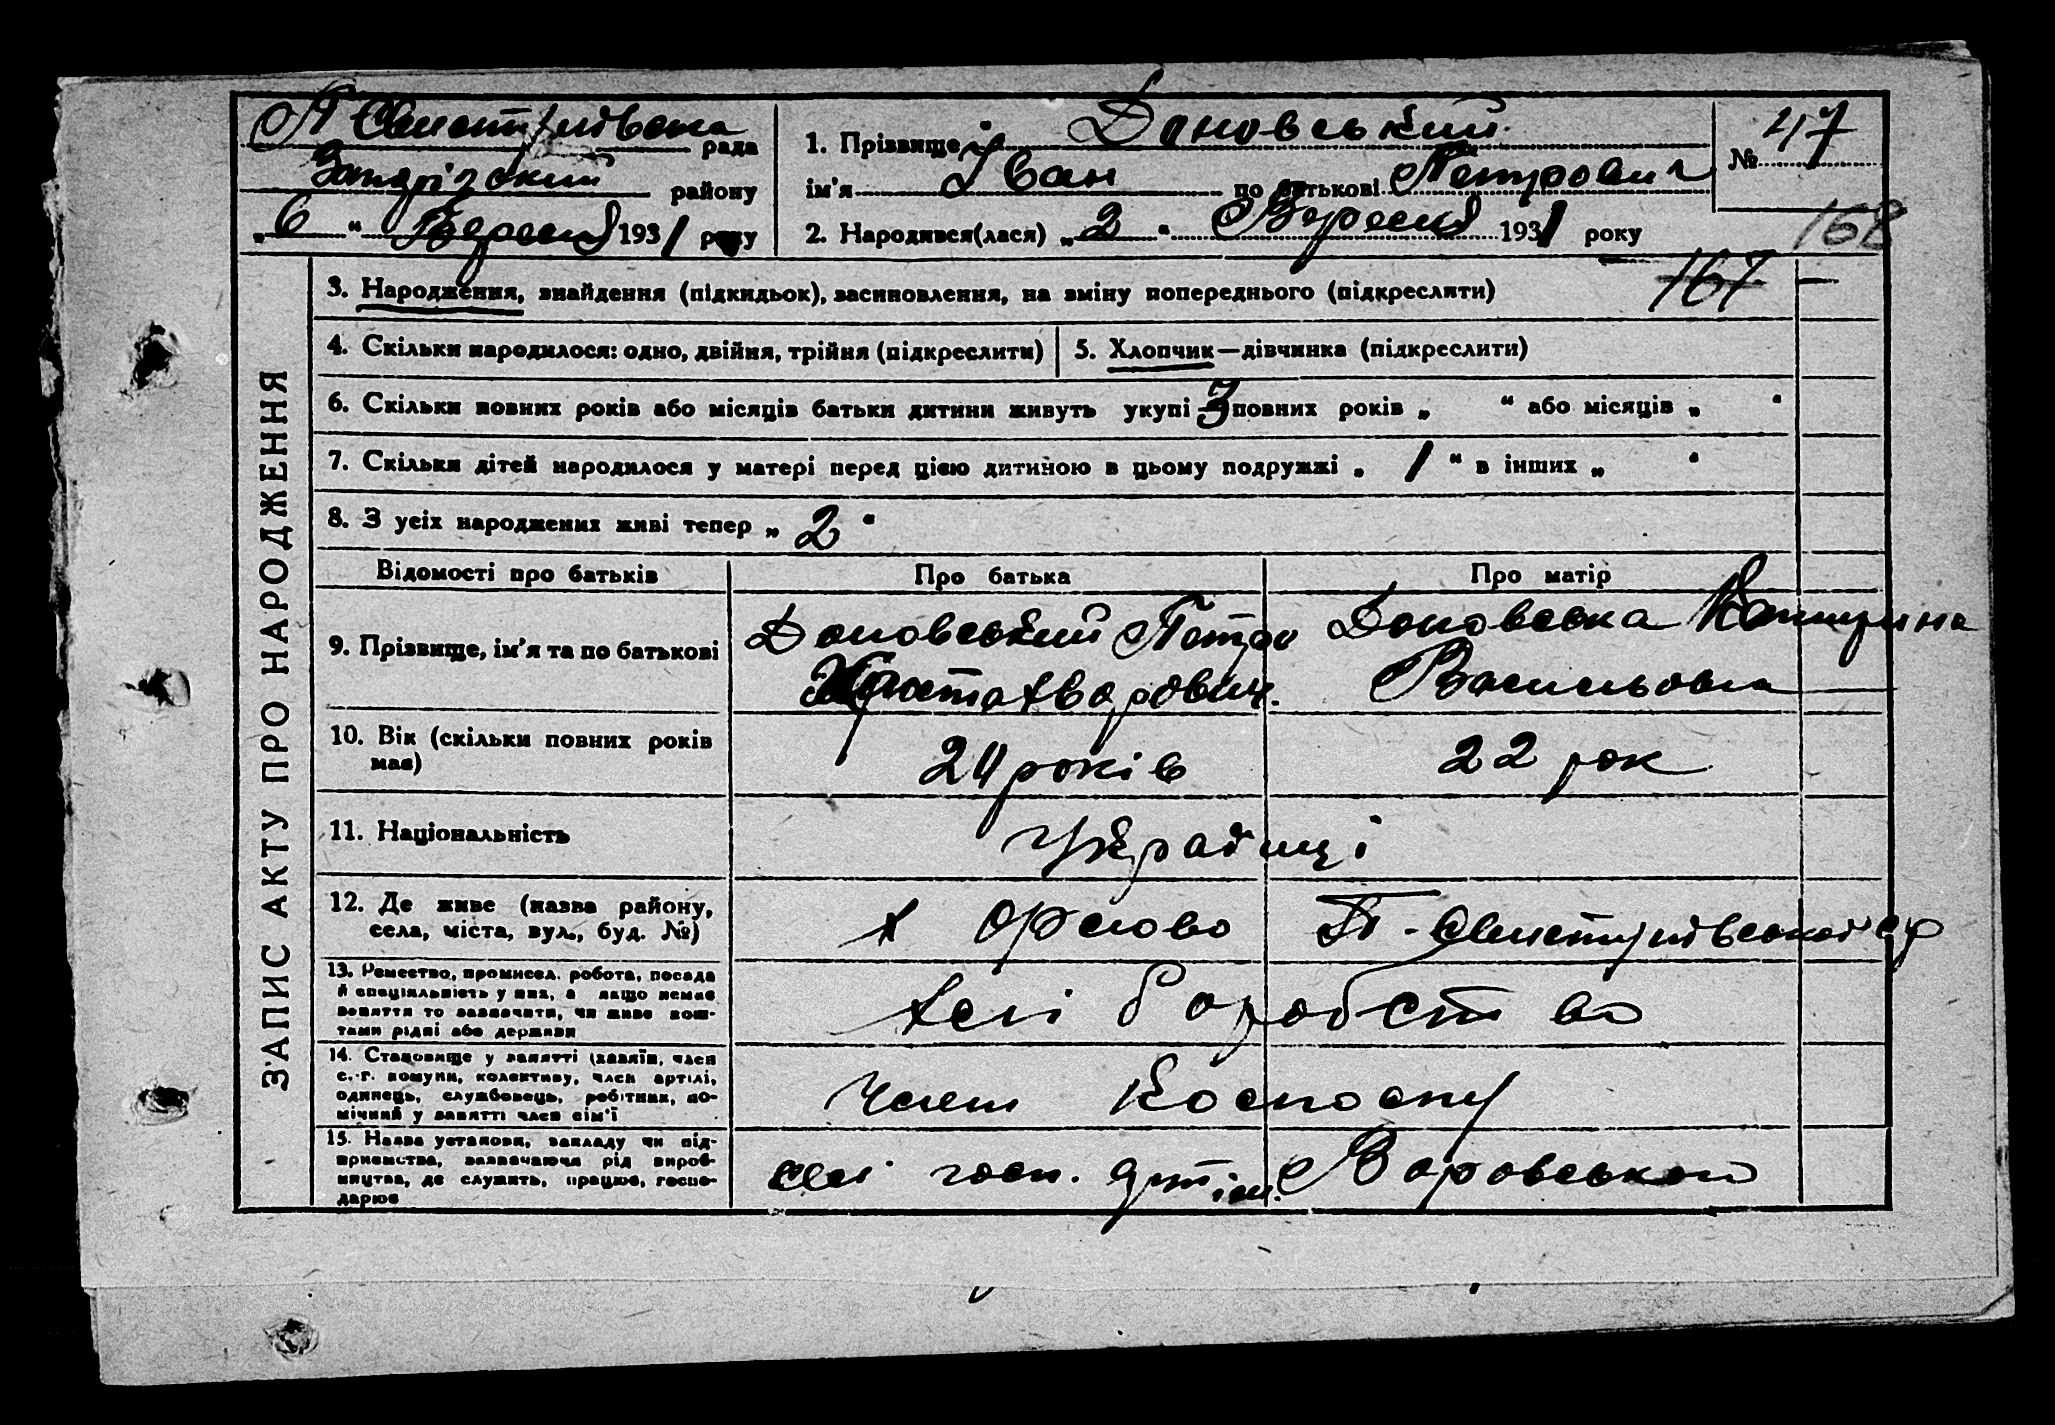 рада
Запорізький району
„ 6 “ Вересня 1931 року
1. Прізвище Доновський
ім'я Іван по батькові Петрович
2. Народився(лася) „ 2 “ Вересня 1931 року
№ 47
168
167
ЗАПИС АКТУ ПРО НАРОДЖЕННЯ
3. Народження, знайдення (підкидьок), засиновлення, на зміну попереднього (підкреслити)
4. Скільки народилося: одно, двійня, трійня (підкреслити)
5. Хлопчик—дівчинка (підкреслити)
6. Скільки повних років або місяців батьки дитини живуть укупі 3 повних років „ “ або місяців „ “
7. Скільки дітей народилося у матері перед цією дитиною в цьому подружжі „ 1 “ в інших „ “
8. З усіх народжених живі тепер „ 2 “
Відомості про батьків
Про батька
Про матір
9. Прізвище, ім'я та по батькові
Доновський Петро
Доновська Катерина
Василовна
10. Вік (скільки повних років
має)
24 років
22 рок
11. Національність
Українці
12. Де живе (назва району,
села, міста, вул., буд. №)
х Орлово
13. Ремество, промисел. робота, посада
й спеціяльність у них, а якщо немає
заняття то зазначити, чи живе кош-
тами рідні або держави
хлі боробство
14. Становище у занятті (хазяїн, член
с.-г. комуни, колективу, член артілі,
одинець, службовець, робітник, по-
мічний у занятті член сім'ї
Член
15. Назва установи, закладу чи під-
приємства, зазначаючи рід вироб-
ництва, де служить, працює, госпо-
дарює
сілі госп. Артіл. Воровського